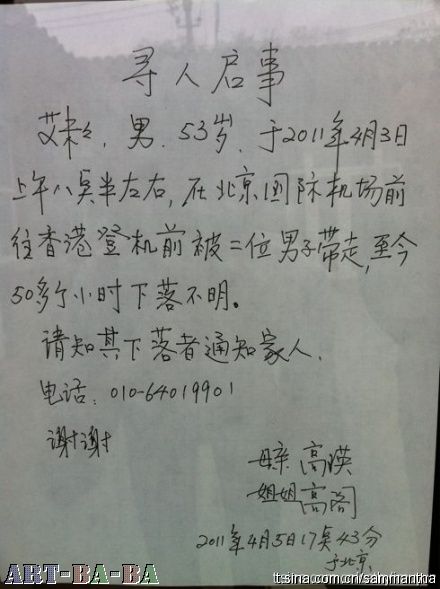 寻人启事
艾未々,男,53岁,于2011年4月3日
上午八点半左右,在北京国际机场前
往香港登机前被二位男子带走,至今
50多个小时下落不明。
请知其下落者通知家人.
电话:010-64019901
谢谢
母亲 高瑛
姐姐 高阁
2011年4月5日17点43分
于北京
ART-BA-BA
t.sina.com.cn/sammantha